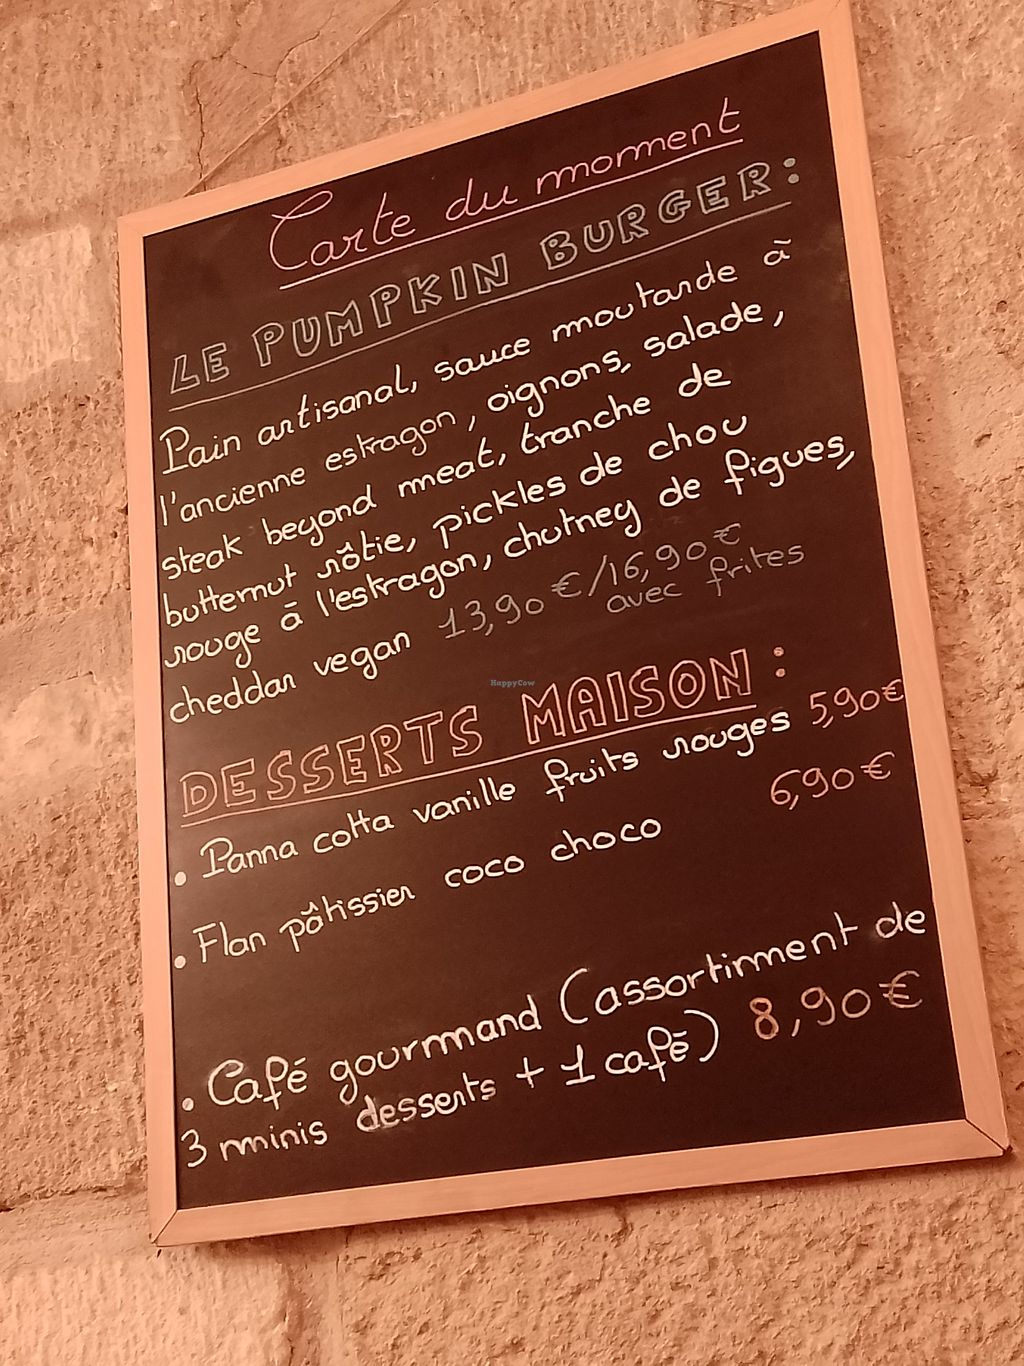 Carte du moment
LE PUMPKIN BURGER :
Pain artisanal, sauce moutarde à
l'ancienne estragon, oignons, salade,
steak beyond meat, tranche de
butternut rôtie, pickles de chou
rouge à l'estragon, chutney de figues,
cheddar vegan 13,90€/16,90€
avec frites
HappyCow
DESSERTS MAISON :
• Panna cotta vanille fruits rouges 5,90€
• Flan pâtissier coco choco 6,90€
• Café gourmand (assortiment de
3 minis desserts + 1 café) 8,90€